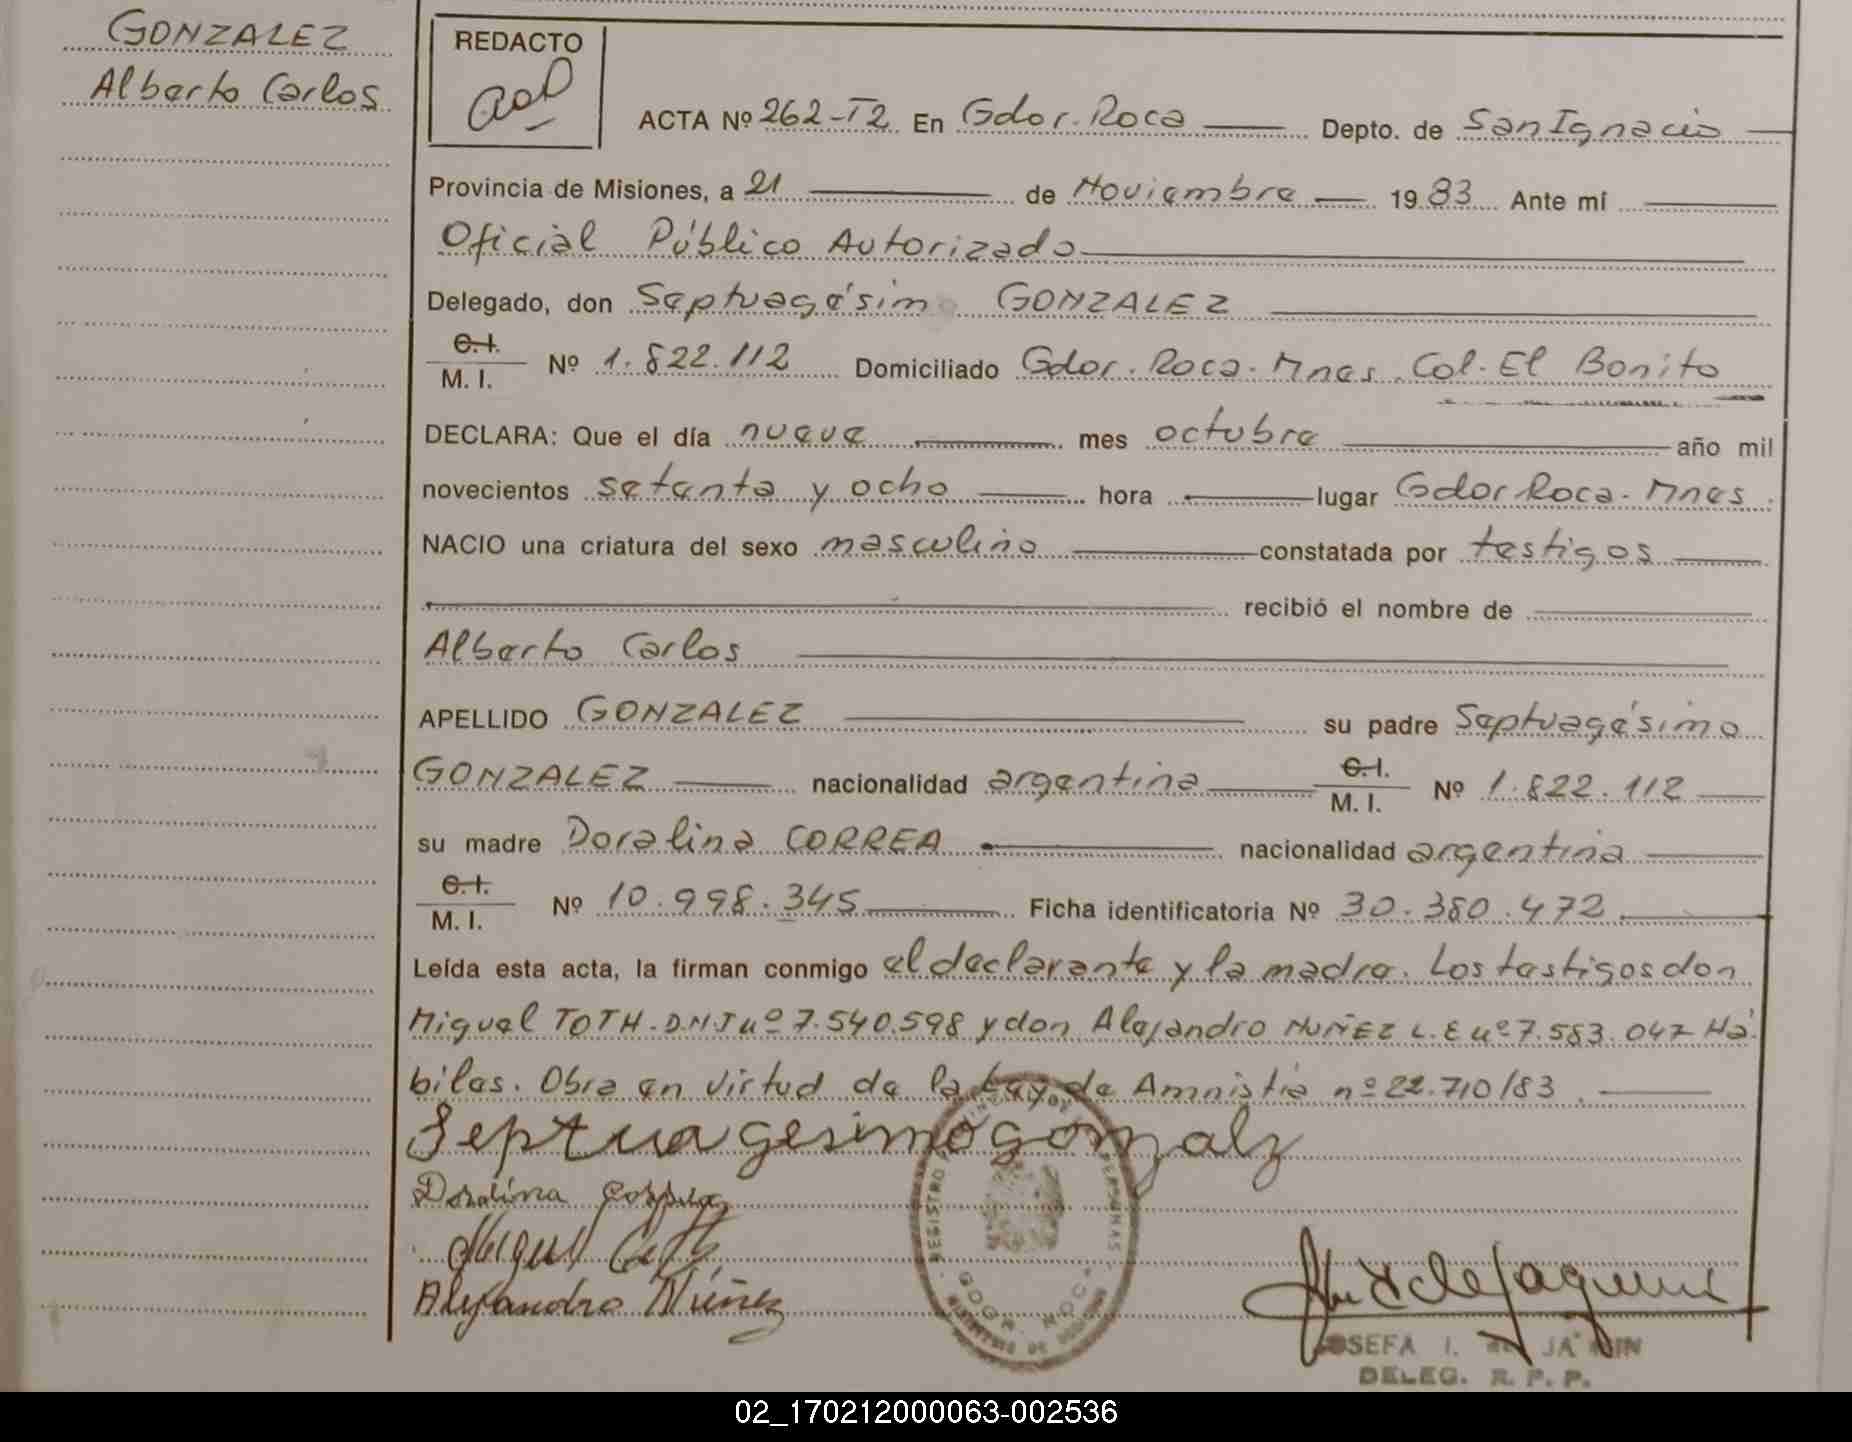 GONZALEZ
Alberto Carlos
REDACTO
ACTA Nº 262-T2 En Gdor. Roca Depto. de San Ignacio
Provincia de Misiones, a 21 de Noviembre 1983 Ante mí
Oficial Público Autorizado
Delegado, don Septuagésimo GONZALEZ
C. I.
M. I. Nº 1.822.112 Domiciliado Gdor. Roca - Mnes. Col. El Bonito
DECLARA: Que el día nueve mes octubre año mil
novecientos setenta y ocho hora lugar Gdor Roca - Mnes.
NACIO una criatura del sexo masculino constatada por testigos
recibió el nombre de
Alberto Carlos
APELLIDO GONZALEZ su padre Septuagésimo
GONZALEZ nacionalidad argentina C. I. M. I. Nº 1.822.112
su madre Doralina CORREA nacionalidad argentina
C. I.
M. I. Nº 10.998.345 Ficha identificatoria Nº 30.380.472
Leída esta acta, la firman conmigo el declarante y la madre. Los testigos don
Miguel TOTH - D.N.I nº 7.540.598 y don Alejandro NUÑEZ L.E nº 7.583.047 Há-
biles. Obra en virtud de la Ley de Amnistia nº 22.710/83.
Septuagesimo gonzalz
Doralina Correa
Miguel Toth
Alejandro Núñez
REGISTRO PROVINCIAL DE LAS PERSONAS
JOSEFA I. de
DELEG. R. P. P.
02_170212000063-002536